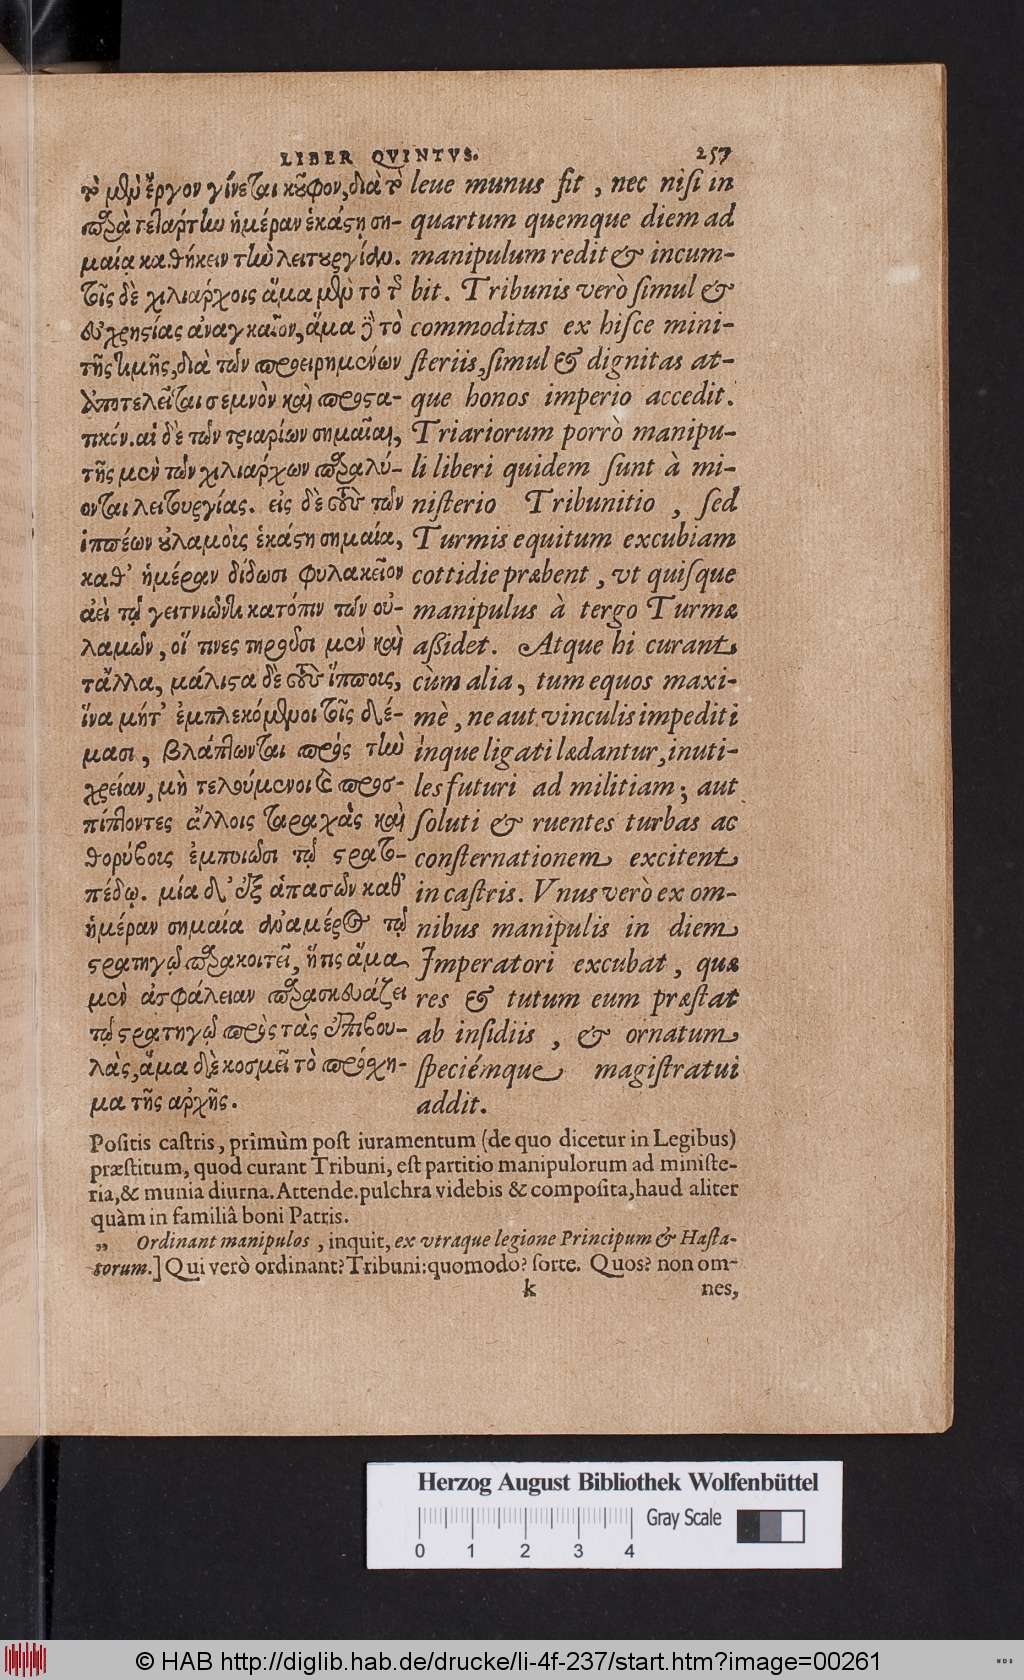 LIBER QVINTVS. 257
τὸ μὲν ἔργον γίνεται κοῦφον, διὰ τὸ
παρὰ τετάρτην ἡμέραν ἑκάστῃ ση-
μαίᾳ καθήκειν τὴν λειτουργίαν.
τοῖς δὲ χιλιάρχοις ἅμα μὲν τὸ τῆς
εὐχρηστίας ἀναγκαῖον, ἅμα δὲ τὸ
τῆς τιμῆς, διὰ τῶν προειρημένων
ἀποτελεῖται σεμνὸν καὶ προστα-
τικόν. αἱ δὲ τῶν τριαρίων σημαῖαι,
τῆς μὲν τῶν χιλιάρχων παραλύ-
ονται λειτουργίας. εἰς δὲ τοὺς τῶν
ἱππέων οὐλαμοὺς ἑκάστη σημαία,
καθ’ ἡμέραν δίδωσι φυλακεῖον
ἀεὶ τῷ γειτνιῶντι κατόπιν τῶν οὐ-
λαμῶν, οἵ τινες τηροῦσι μὲν καὶ
τἄλλα, μάλιστα δὲ τοὺς ἵπποις,
ἵνα μήτ’ ἐμπλεκόμενοι τοῖς δέ-
μασι, βλάπτωνται πρὸς τὴν
χρείαν, μὴ τελούμενοί τε προσ-
πίπτοντες ἄλλοις ταραχὰς καὶ
θορύβοις ἐμποιῶσι τῷ στρατο-
πέδῳ. μία δ’ ἐξ ἁπασῶν καθ’
ἡμέραν σημαία ἀνὰ μέρος τῷ
στρατηγῷ παρακοιτεῖ, ἥτις ἅμα
μὲν ἀσφάλειαν παρασκευάζει
τῷ στρατηγῷ πρὸς τὰς ἐπιβου-
λὰς, ἅμα δὲ κοσμεῖ τὸ πρόσχη-
μα τῆς ἀρχῆς.
leue munus fit, nec nisi in
quartum quemque diem ad
manipulum redit & incum-
bit. Tribunis verò simul &
commoditas ex hisce mini-
steriis, simul & dignitas at-
que honos imperio accedit.
Triariorum porrò manipu-
li liberi quidem sunt à mi-
nisterio Tribunitio, sed
Turmis equitum excubiam
cottidie præbent, vt quisque
manipulus à tergo Turmæ
assidet. Atque hi curant
cùm alia, tum equos maxi-
mè, ne aut vinculis impediti
inque ligati lædantur, inuti-
les futuri ad militiam; aut
soluti & ruentes turbas ac
consternationem excitent
in castris. Vnus verò ex om-
nibus manipulis in diem
Imperatori excubat, quæ
res & tutum eum præstat
ab insidiis, & ornatum
speciémque magistratui
addit.
Positis castris, primùm post iuramentum (de quo dicetur in Legibus)
præstitum, quod curant Tribuni, est partitio manipulorum ad ministe-
ria, & munia diurna. Attende. pulchra videbis & composita, haud aliter
quàm in familiâ boni Patris.
„ Ordinant manipulos, inquit, ex vtraque legione Principum & Hasta-
torum.] Qui verò ordinant? Tribuni: quomodo? sorte. Quos? non om-
k nes,
Herzog August Bibliothek Wolfenbüttel
Gray Scale
0 1 2 3 4
© HAB http://diglib.hab.de/drucke/li-4f-237/start.htm?image=00261